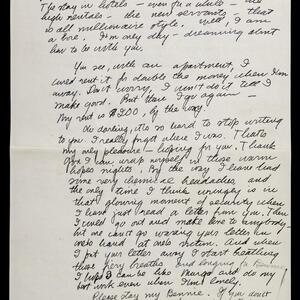 The stay in hotels — even for a while — the
high rentals — the new servants — that
is all millionaire style. Well, I am
a bore. I'm only day-dreaming about
how to be with you.
You see, with an apartment, I
could rent it for double the money when I'm
away. Don't worry, I won't do it till I
make good. But there I go again —
My rent is $200, by the way.
Oh darling, it's so hard to stop writing
to you. I really forget where I was. That's
my only pleasure — longing for you. Thank
God I can wrap myself in those warm
hopes nights. By the way I have had
some very bad headaches and
the only time I think is in
that glowing moment of security when
I have just read a letter from you. Then
I could go out and make love to anybody.
But one can't go waving your letter in
one hand at such a time. And when
I put your letter away I start breathing
those very breaths and longing for
I wish I can be like Margo and do my
best work even when I'm lonely.
Please, my Bennie. If you don't